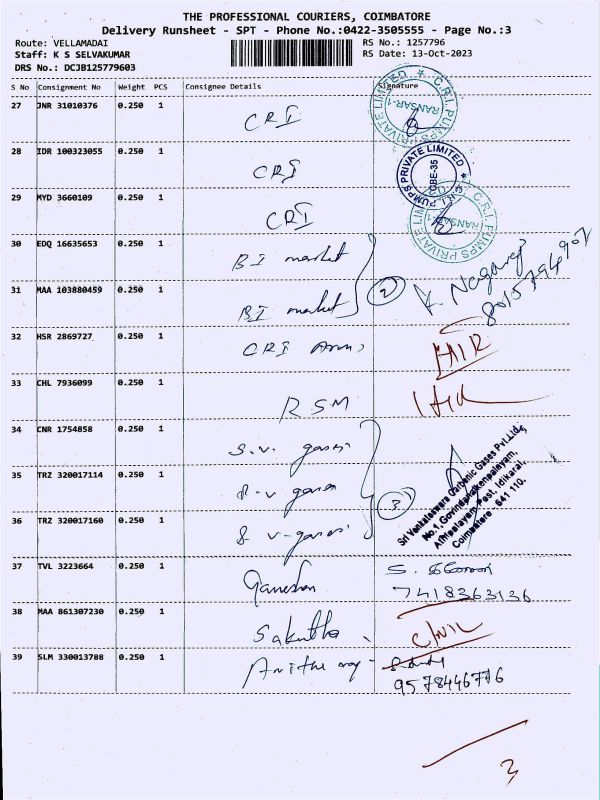 THE PROFESSIONAL COURIERS, COIMBATORE
Delivery Runsheet - SPT - Phone No.:0422-3505555 - Page No.:3
Route: VELLAMADAI
RS No.: 1257796
Staff: K S SELVAKUMAR
RS Date: 13-Oct-2023
DRS No.: DCJB125779603
S No Consignment No Weight PCS Consignee Details Signature
27 JNR 31010376 0.250 1 CRI
C.R.I. PUMPS PRIVATE LIMITED
28 IDR 100323055 0.250 1 CRI
C.R.I. PUMPS PRIVATE LIMITED CBE-35
29 MYD 3660109 0.250 1 CRI
C.R.I. PUMPS PRIVATE LIMITED
30 EDQ 16635653 0.250 1 BI market
31 MAA 103880459 0.250 1 BI market 2 K. Nagaraj
32 HSR 2869727 0.250 1 CRI
33 CHL 7936099 0.250 1 RSM
34 CNR 1754858 0.250 1 S.V. gases
35 TRZ 320017114 0.250 1 S.V gases
36 TRZ 320017160 0.250 1 S V-gases 3
Sri Venkateswara Carbonic Gases Pvt.Ltd.,
No.1, Govindanaickenpalayam,
Post, Idikarai,
Coimbatore - 641 110.
37 TVL 3223664 0.250 1 Ganeshan
7418363136
38 MAA 861307230 0.250 1
39 SLM 330013788 0.250 1
9578446776
3